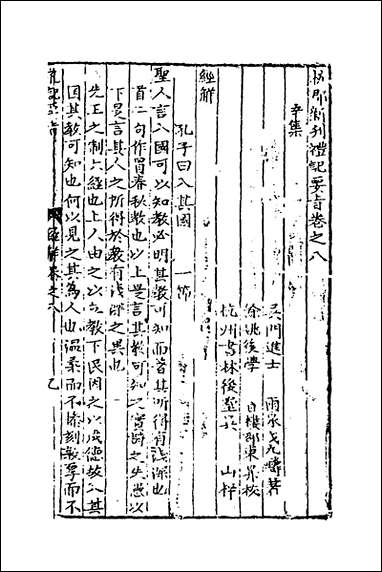 新刊禮記要旨卷之八
辛集
吳門進士 雨泉戈九疇著
餘姚後學 白樓邵東昇校
杭州書林後 吳 山梓
經解
孔子曰入其國 一節
聖人言入國可以知教必明其教可知而著其所得有淺深也
首二句作冒春秋教也以上是言其教可知 實 之失愚以
下是言其人之所得於教有淺深之異也
先王之制六經也上人由之以 教下民因之以成德故入其
國其教可知也何以見之其為人也溫柔而不 刻敦厚而不
禮記要旨 經解卷之八 乙